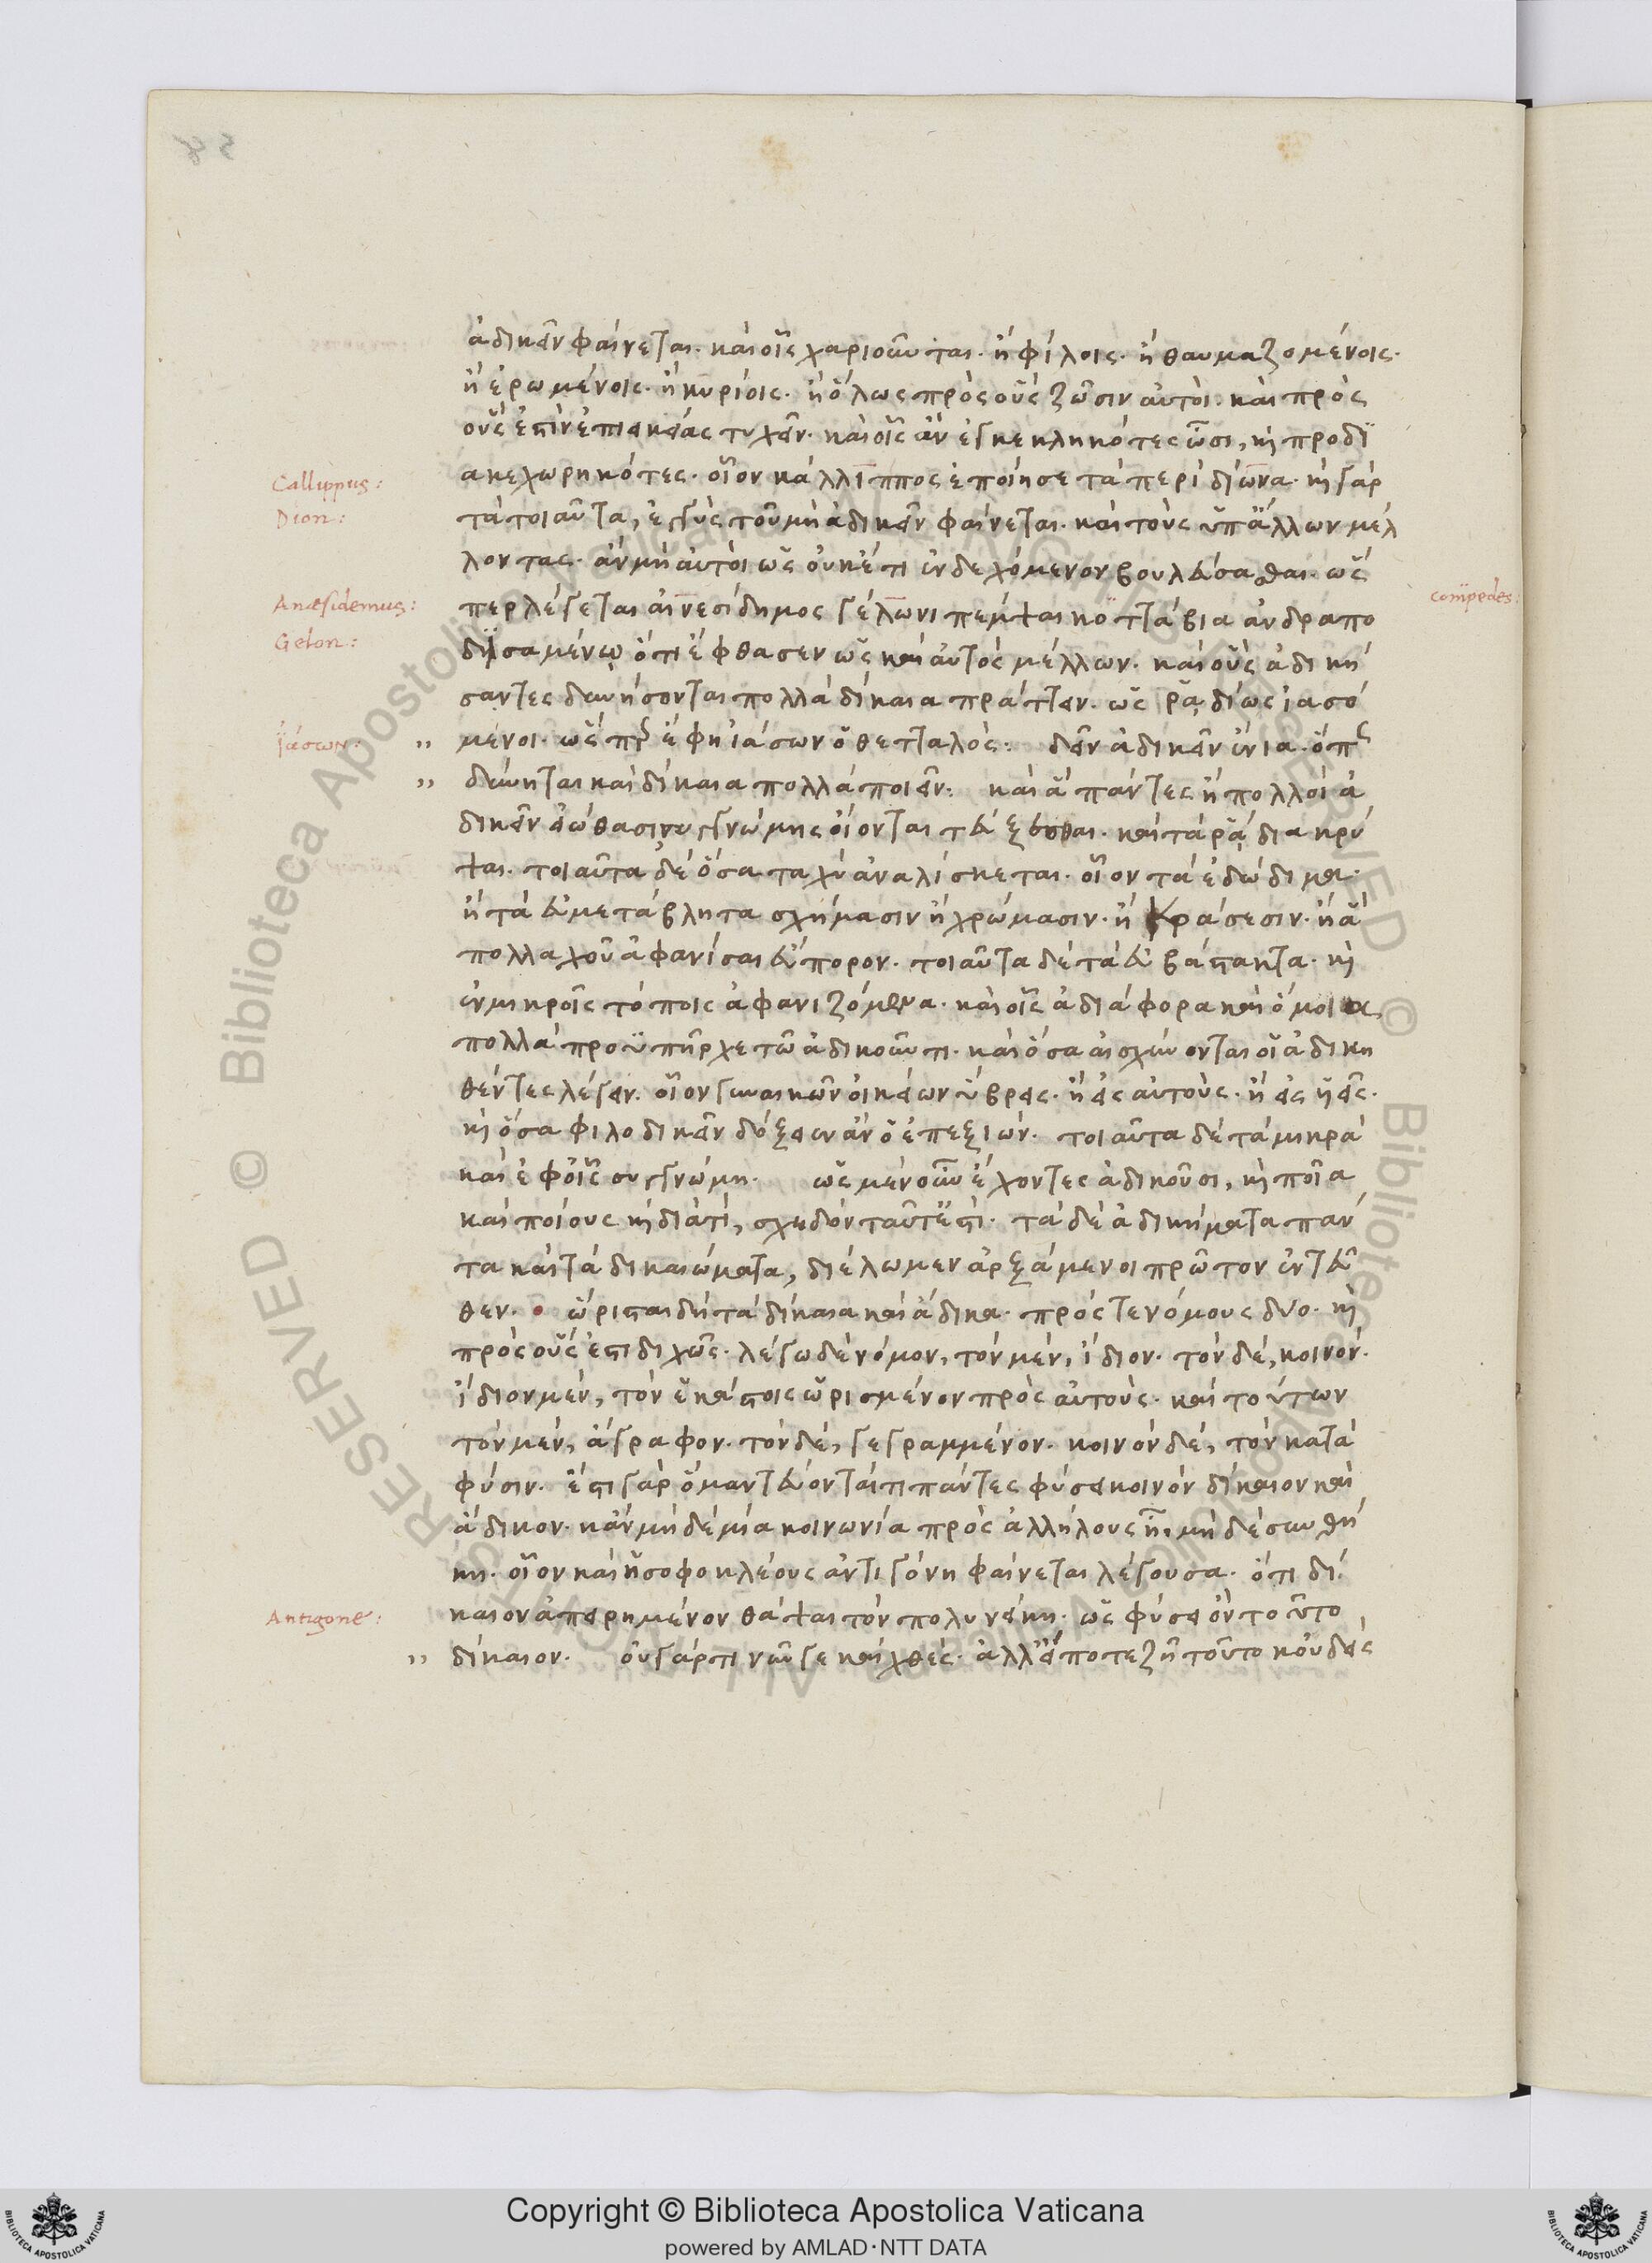 ἀδικεῖν φαίνεται. καὶ οἷς χαριοῦνται. ἢ φίλοις. ἢ θαυμαζομένοις.
ἢ ἐρωμένοις. ἢ κυρίοις. ἢ ὅλως πρὸς οὓς ζῶσιν αὐτοί. καὶ πρὸς
οὓς ἐστὶν ἐπιεικείας τυχεῖν. καὶ οἷς ἂν ἐγκεκληκότες ὦσι, κὶ προδϊ
ακεχωρηκότες. οἷον κάλλιππος ἐποίησε τὰ περὶ δίωνα. κὶ γὰρ
Callippus:
Dion:
τὰ τοιαῦτα, ἐγγὺς τοῦ μὴ ἀδικεῖν φαίνεται. καὶ τοὺς ὑπ' ἄλλων μέλ
λοντας. ἂν μὴ αὐτοὶ ὡς οὐκέτι ἐνδεχόμενον βουλεύσασθαι. ὥς
περ λέγεται αἰνεσίδημος γέλωνι πέμψαι κοττάβια ἀνδραπο
Anæsidemus:
compedes:
Gelon:
δισαμένῳ ὅτι ἔφθασεν ὡς καὶ αὐτὸς μέλλων. καὶ οὓς ἀδική
σαντες δυνήσονται πολλὰ δίκαια πράττειν. ὡς ῥᾳδίως ἰασό
ἰάσων:
,, μενοι. ὥςπερ ἔφη ἰάσων ὁ θετταλός. δεῖν ἀδικεῖν ἔνια. ὅπως
,, δύνηται καὶ δίκαια πολλὰ ποιεῖν. καὶ ἃ πάντες ἢ πολλοὶ ἀ
δικεῖν εἰώθασιν συγγνώμης οἴονται τεύξεσθαι. καὶ τὰ ῥᾴδια κρύ
ψαι. τοιαῦτα δὲ ὅσα ταχὺ ἀναλίσκεται. οἷον τὰ ἐδώδιμα.
ἢ τὰ εὐμετάβλητα σχήμασιν ἢ χρώμασιν. ἢ κράσεσιν. ἢ ἃ
πολλαχοῦ ἀφανίσαι εὔπορον. τοιαῦτα δὲ τὰ εὐβάστακτα. κὶ
ἐν μικροῖς τόποις ἀφανιζόμενα. καὶ οἷς ἀδιάφορα καὶ ὅμοια
πολλὰ προϋπῆρχε τῶ ἀδικοῦντι. καὶ ὅσα αἰσχύνονται οἱ ἀδικη
θέντες λέγειν. οἷον γυναικῶν οἰκείων ὕβρεις. ἢ εἰς αὐτούς. ἢ εἰς υἱεῖς.
κὶ ὅσα φιλοδικεῖν δόξειεν ἂν ὁ ἐπεξιών. τοιαῦτα δὲ τὰ μικρὰ
καὶ ἐφ' οἷς συγγνώμη. ὡς μὲν οὖν ἔχοντες ἀδικοῦσι, κὶ ποῖα
καὶ ποίους κὶ διατί, σχεδὸν ταῦτ' ἐστι. τὰ δὲ ἀδικήματα πάν
τα καὶ τὰ δικαιώματα, διέλωμεν ἀρξάμενοι πρῶτον ἐντεῦ
θεν. ὥρισται δὴ τὰ δίκαια καὶ ἄδικα. πρός τε νόμους δύο. κὶ
πρὸς οὓς ἐστι διχῶς. λέγω δὲ νόμον, τὸν μέν, ἴδιον. τὸν δέ, κοινόν.
ἴδιον μέν, τὸν ἑκάστοις ὡρισμένον πρὸς αὐτούς. καὶ τούτων
τὸν μέν, ἄγραφον. τὸν δέ, γεγραμμένον. κοινὸν δέ, τὸν κατὰ
φύσιν. ἔστι γὰρ ὃ μαντεύονταί τι πάντες φύσει κοινὸν δίκαιον καὶ
ἄδικον. κἂν μὴ δὲ μία κοινωνία πρὸς ἀλλήλους ἦ. μὴ δὲ συνθή
κη. οἷον καὶ ἡ σοφοκλέους ἀντιγόνη φαίνεται λέγουσα. ὅτι δί
Antigone:
καιον ἀπειρημένον θάψαι τὸν πολυνείκη. ὡς φύσει ὂν τοῦτο
,, δίκαιον. οὐ γάρ τι νῦν γε καὶ χθές. ἀλλ' ἀεί ποτε ζῆ τοῦτο κοὐδεὶς
Copyright © Biblioteca Apostolica Vaticana
powered by AMLAD·NTT DATA